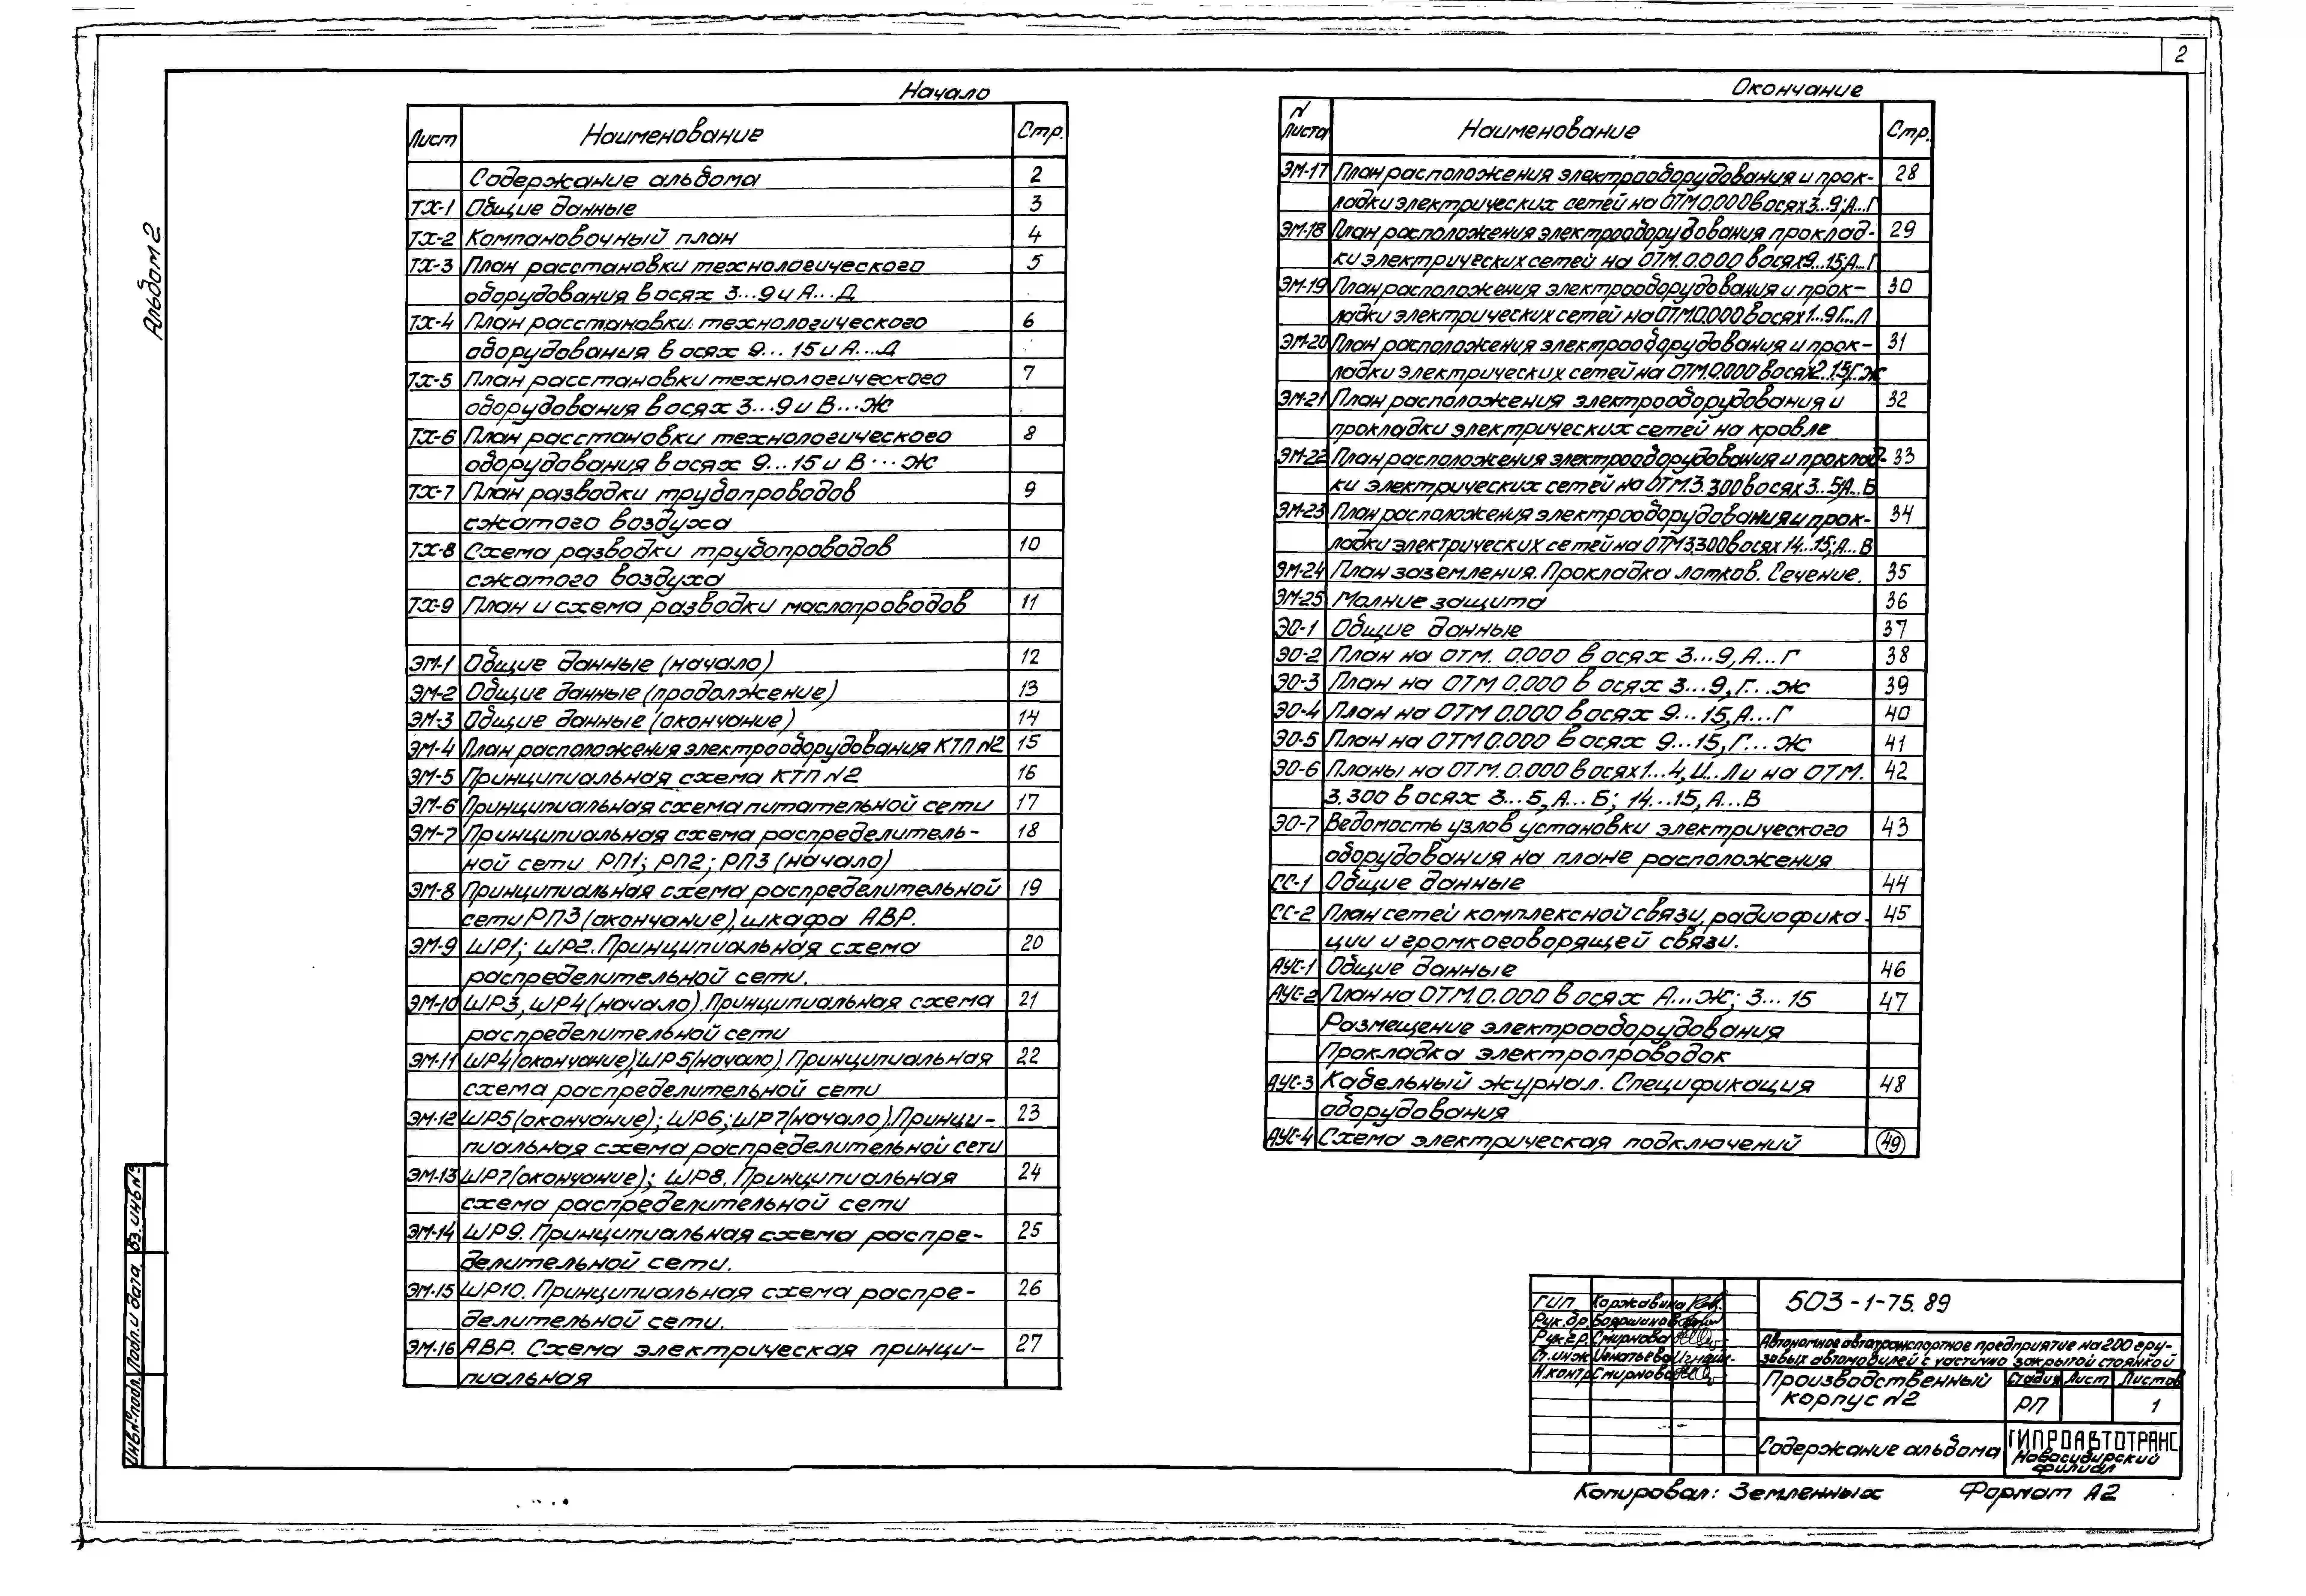 2
Альбом 2
Начало
Лист Наименование Стр.
Содержание альбома 2
ТХ-1 Общие данные 3
ТХ-2 Компановочный план 4
ТХ-3 План расстановки технологического 5
оборудования в осях 3...9 и А...Д
ТХ-4 План расстановки технологического 6
оборудования в осях 9...15 и А...Д
ТХ-5 План расстановки технологического 7
оборудования в осях 3...9 и В...Ж
ТХ-6 План расстановки технологического 8
оборудования в осях 9...15 и В...Ж
ТХ-7 План разводки трубопроводов 9
сжатого воздуха
ТХ-8 Схема разводки трубопроводов 10
сжатого воздуха
ТХ-9 План и схема разводки маслопроводов 11
ЭМ-1 Общие данные (начало) 12
ЭМ-2 Общие данные (продолжение) 13
ЭМ-3 Общие данные (окончание) 14
ЭМ-4 План расположения электрооборудования КТП №2 15
ЭМ-5 Принципиальная схема КТП №2 16
ЭМ-6 Принципиальная схема питательной сети 17
ЭМ-7 Принципиальная схема распределитель- 18
ной сети РП1; РП2; РП3 (начало)
ЭМ-8 Принципиальная схема распределительной 19
сети РП3 (окончание), шкафа АВР.
ЭМ-9 ШР1; ШР2. Принципиальная схема 20
распределительной сети.
ЭМ-10 ШР3, ШР4 (начало). Принципиальная схема 21
распределительной сети
ЭМ-11 ШР4 (окончание); ШР5 (начало). Принципиальная 22
схема распределительной сети
ЭМ-12 ШР5 (окончание); ШР6; ШР7 (начало). Принци- 23
пиальная схема распределительной сети
ЭМ-13 ШР7 (окончание); ШР8. Принципиальная 24
схема распределительной сети
ЭМ-14 ШР9. Принципиальная схема распре- 25
делительной сети.
ЭМ-15 ШР10. Принципиальная схема распре- 26
делительной сети.
ЭМ-16 АВР. Схема электрическая принци- 27
пиальная
Окончание
N Листа Наименование Стр.
ЭМ-17 План расположения электрооборудования и прок- 28
ладки электрических сетей на ОТМ 0.000 в осях 3...9; А...Г
ЭМ-18 План расположения электрооборудования проклад- 29
ки электрических сетей на ОТМ. 0.000 в осях 9...15, А...Г
ЭМ-19 План расположения электрооборудования и прок- 30
ладки электрических сетей на ОТМ. 0.000 в осях 1...9 Г...Л
ЭМ-20 План расположения электрооборудования и прок- 31
ладки электрических сетей на ОТМ. 0.000 в осях 2..15, Г..Ж
ЭМ-21 План расположения электрооборудования и 32
прокладки электрических сетей на кровле
ЭМ-22 План расположения электрооборудования и проклад- 33
ки электрических сетей на ОТМ. 3.300 в осях 3..5, А..Б
ЭМ-23 План расположения электрооборудования и прок- 34
ладки электрических сетей на ОТМ 3.300 в осях 14...15; А...В
ЭМ-24 План заземления. Прокладка лотков. Сечение. 35
ЭМ-25 Молние защита 36
ЭО-1 Общие данные 37
ЭО-2 План на отм. 0.000 в осях 3...9, А...Г 38
ЭО-3 План на ОТМ 0.000 в осях 3...9, Г...Ж 39
ЭО-4 План на ОТМ 0.000 в осях 9...15, А...Г 40
ЭО-5 План на ОТМ 0.000 в осях 9...15, Г...Ж 41
ЭО-6 Планы на ОТМ. 0.000 в осях 1...4, И...Л и на ОТМ. 42
3.300 в осях 3...5, А...Б; 14...15, А...В
ЭО-7 Ведомость узлов установки электрического 43
оборудования на плане расположения
СС-1 Общие данные 44
СС-2 План сетей комплексной связи, радиофика- 45
ции и громкоговорящей связи.
АУС-1 Общие данные 46
АУС-2 План на ОТМ. 0.000 в осях А...Ж; 3...15 47
Размещение электрооборудования
Прокладка электропроводок
АУС-3 Кабельный журнал. Спецификация 48
оборудования
АУС-4 Схема электрическая подключений 49
Инв.№ подл. Подп. и дата Вз. инв №
ГИП Коржавина
Рук.бр. Бояршинов
Рук.гр. Смирнова
Ст.инж Игнатьева
Н.контр Смирнова
503-1-75.89
Автономное автотранспортное предприятие на 200 гру-
зовых автомобилей с частично закрытой стоянкой
Производственный
корпус №2
Стадия Лист Листов
РП 1
Содержание альбома
ГИПРОАВТОТРАНС
Новосибирский
филиал
Копировал: Земленных Формат А2